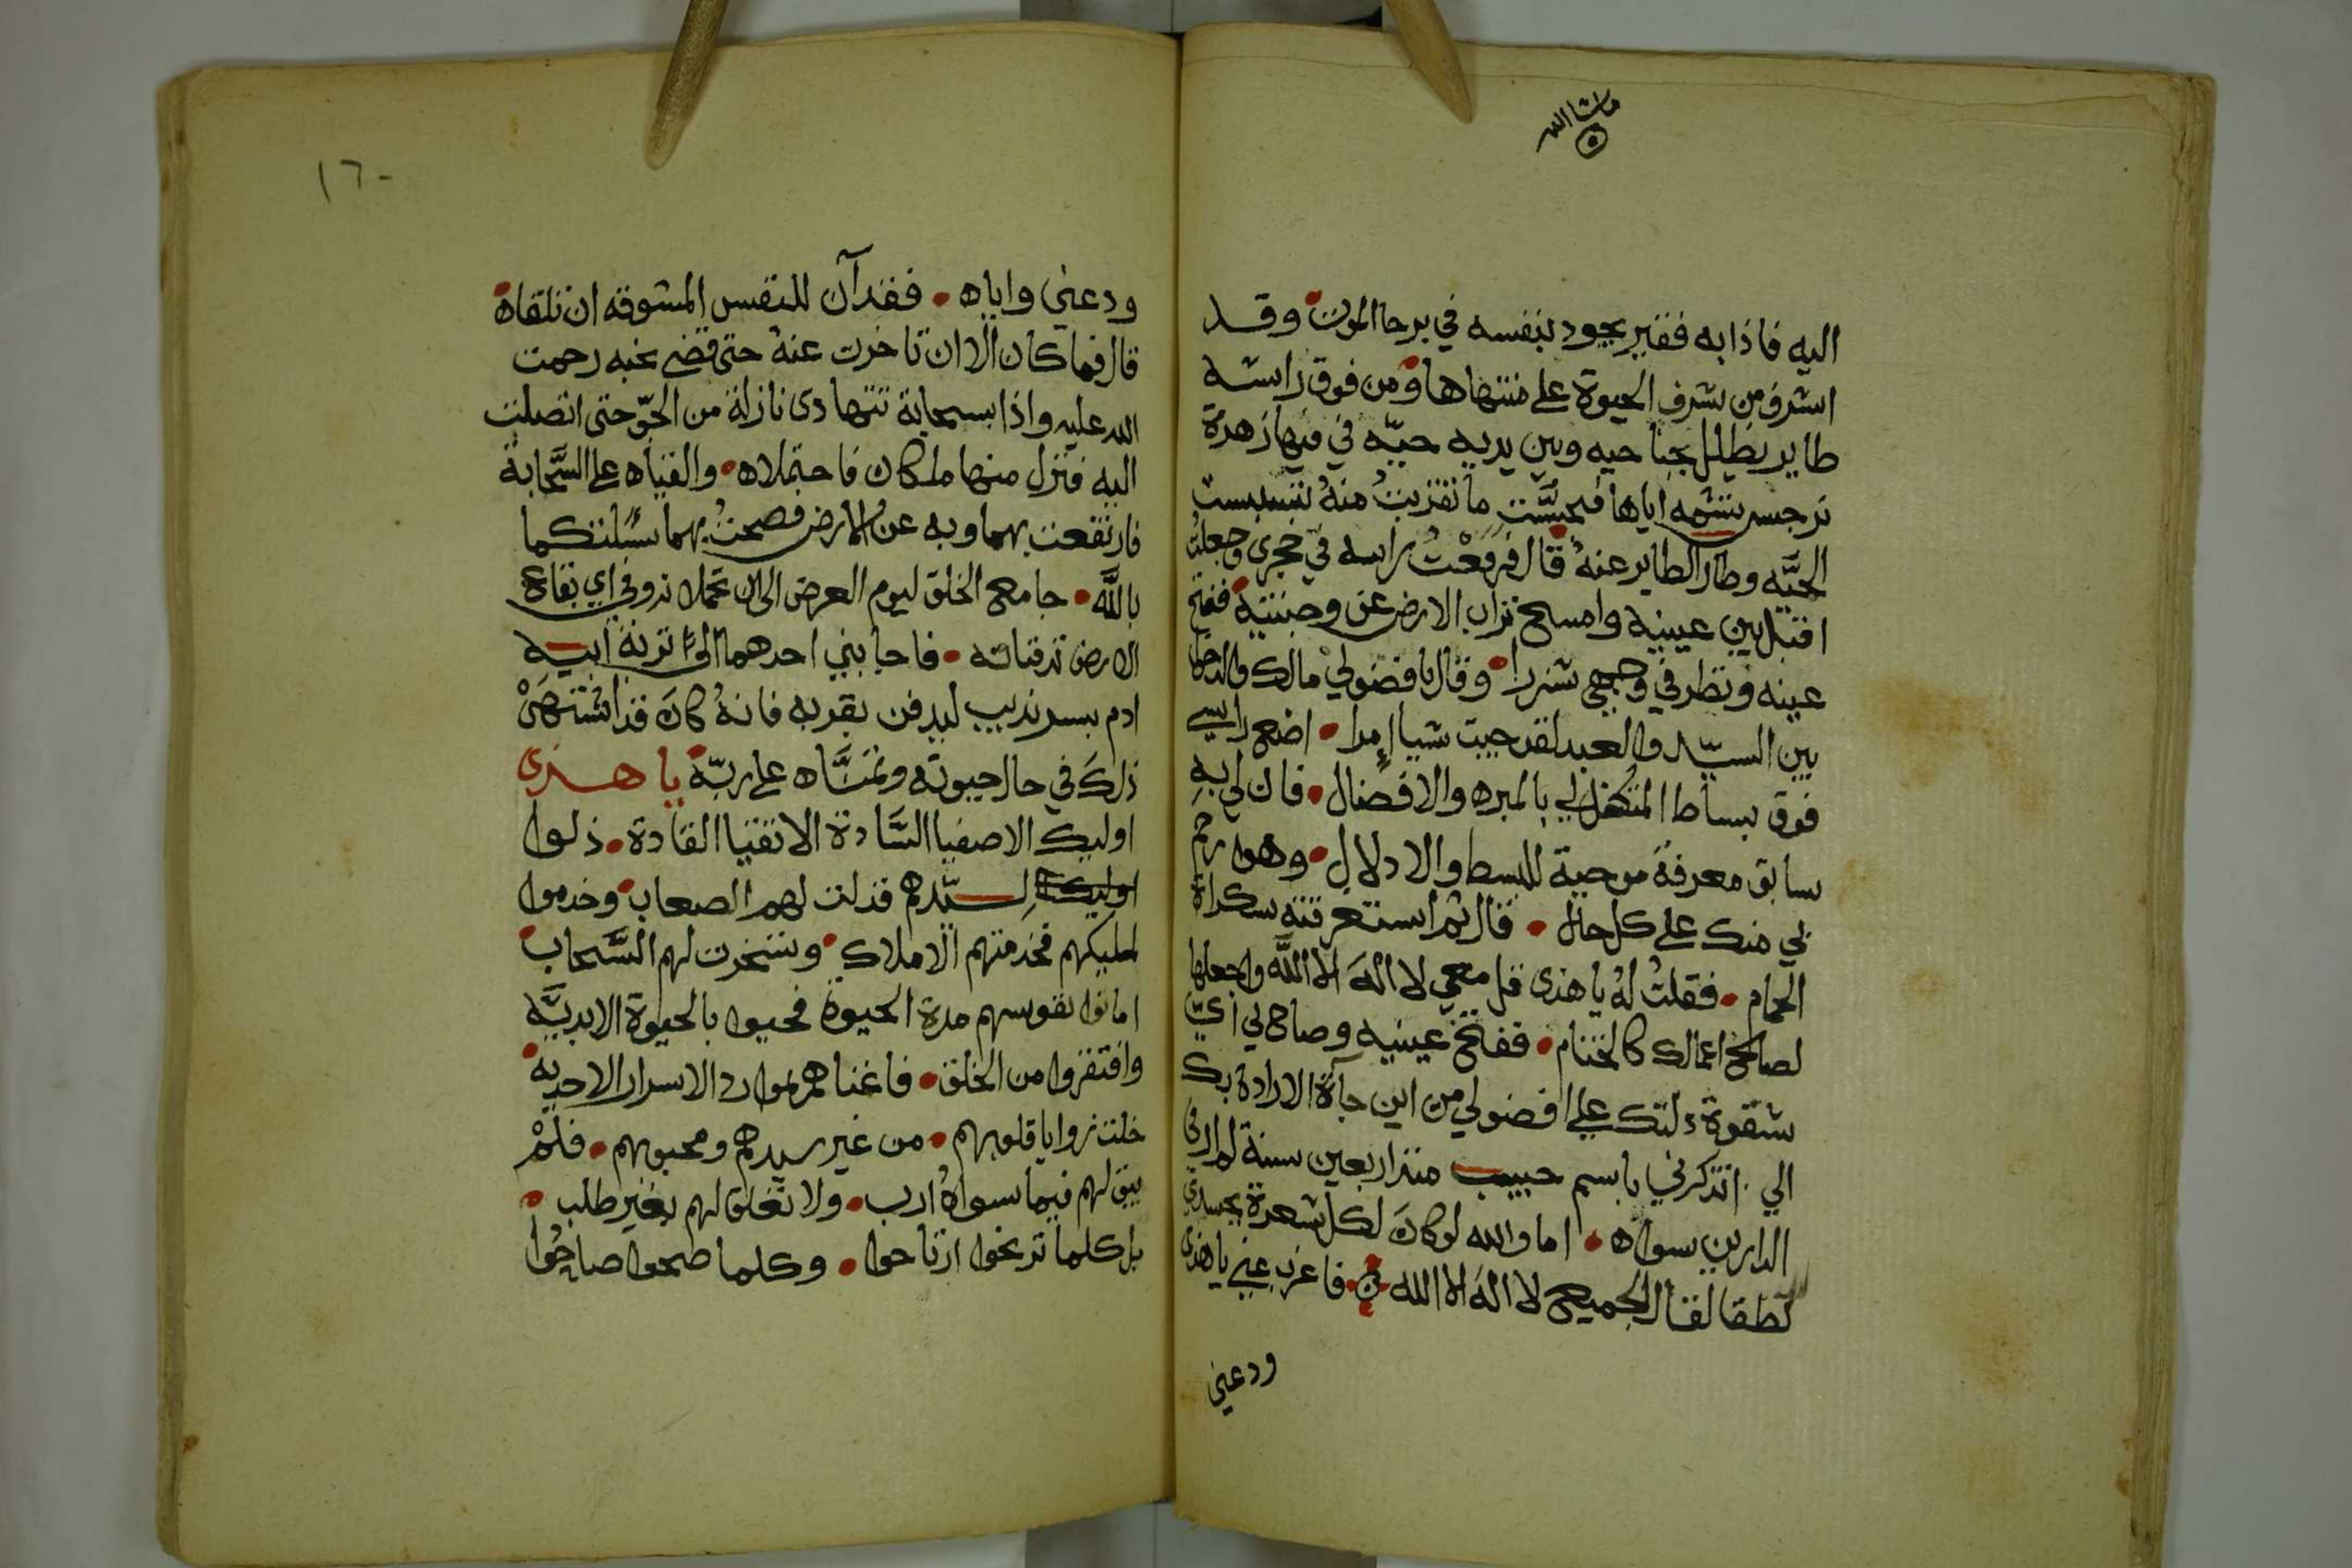 ماشا الله
اليه فاذا به فقير يجود بنفسه في برحا الموت وقد
اشرف من شرف الحيوة على منتهاها ومن فوق راسه
طاير يظلل بجناحيه وبين يديه حيّه في فيها زهرة
نرجس تشمه اياها فحيَّست ما تقربتُ منهُ
الحيَّه وطار الطاير عنهُ قال فرفعْتُ راسه في حجري وجعلتُ
اقبل بين عينيه وامسح تراب الارض عن وجنتيه ففتح
عينه ونظر في وجهي شزرا وقال يا فضولي مالك والدخول
بين السيّد والعبد لقد جيت شيا إمرا اضع راسي
فوق بساط المتكفل لي بالمبره والافضال فان لي به
سابق معرفة موجبة للبسط والادلال وهو ارحم
بي منك على كل حال قال ثم استغرقته سكراة
الحمام فقلتُ لهُ يا هذى قل معي لا اله الا اللَّه واجعلها
لصالح اعمالك كالختام ففتح عينيه وصاح بي اي
شقوة دلتك علي افضولي من اين جآة الارادة بك
الي اتذكرني باسم حبيب منذ اربعين سنة لم ار في
الدارين سواه اما والله لو كانَ لكل شعرة بجسدي
نطقا لقال الجميع لا اله الا الله فاغرب عني يا هذى
ودعني
١٦٠
ودعني واياه فقد آن للنفس المشوقه ان تلقاه
قال فما كان الا ان تاخرت عنهُ حتى قضى نحبه رحمت
الله عليه واذا بسحابة تتهادى نازلة من الجوّ حتى اتصلت
اليه فنزل منها ملكان فاحتملاه والقياه على السَّحابة
فارتفعت بهما وبه عن الارض فصحتُ بهما سئلتكما
باللَّه جامع الخلق ليوم العرض الى اين تحملانه وفي اي بقاع
الارض تدفنانه فاجابني احدهما الى تربة ابيه
ادم بسرنديب ليدفن بقربه فانهُ كانَ قد اشتهىْ
ذلكَ في حال حيوته وتمنَّاه على ربّه يا هذى
اوليك الاصفيا السَّادة الاتقيا القادة ذلوا
اوليك لسيّدهم فذلت لهم الصعاب وخدموا
لمليكهم فخدمتهم الاملاك وسخرت لهم السَّحاب
اماتوا نفوسهم مدة الحيوة فحيوا بالحيوة الابديَّه
وافتقروا من الخلق فاغناهم بموارد الاسرار الاحديه
خلت زوايا قلوبهم من غير سيدهم ومحبوبهم فلمْ
يبق لهم فيما سواهُ ارب ولا تعلق لهم بغير طلب
بل كلما ترنحوا ارتاحوا وكلما صحوا صاحُوا